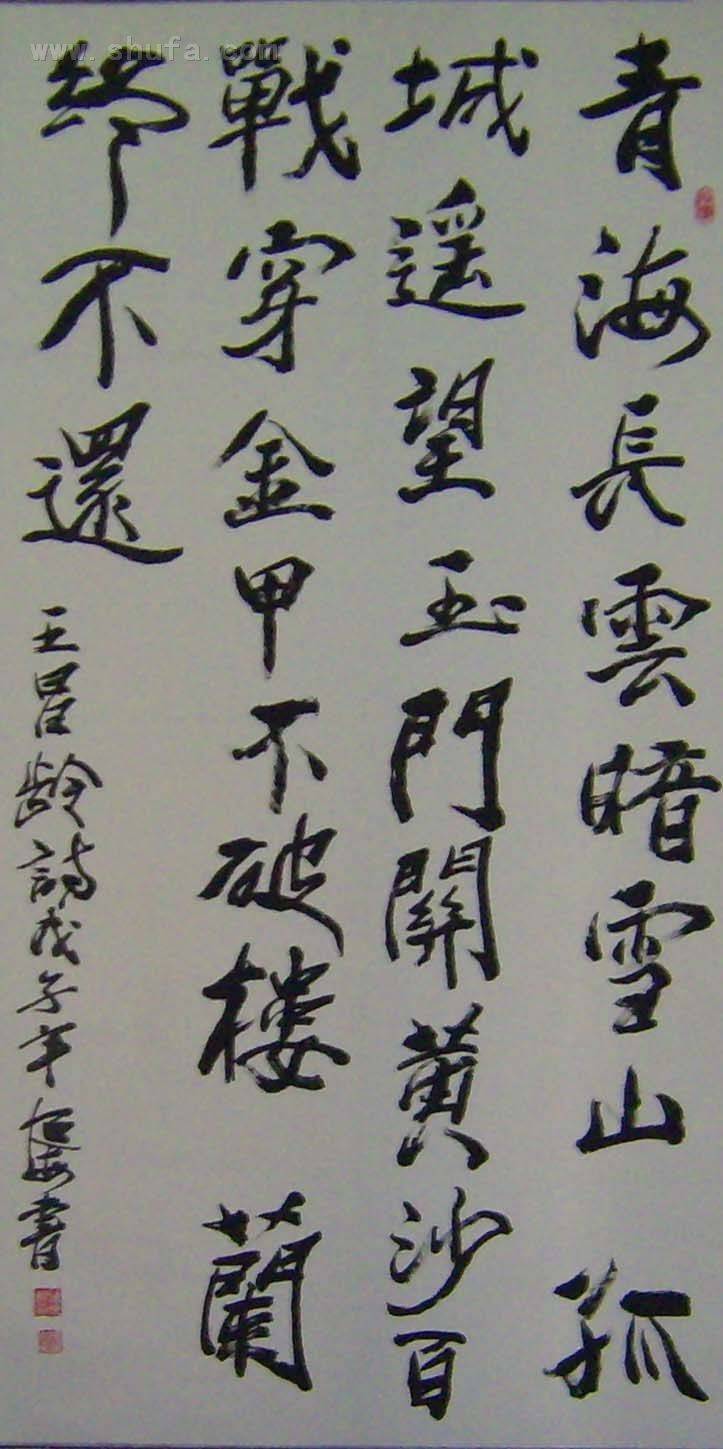 www.shufa.com
青海長雲暗雪山孤
城遥望玉門關黄沙百
戰穿金甲不破楼蘭
終不還
王昌齡詩戊子年書